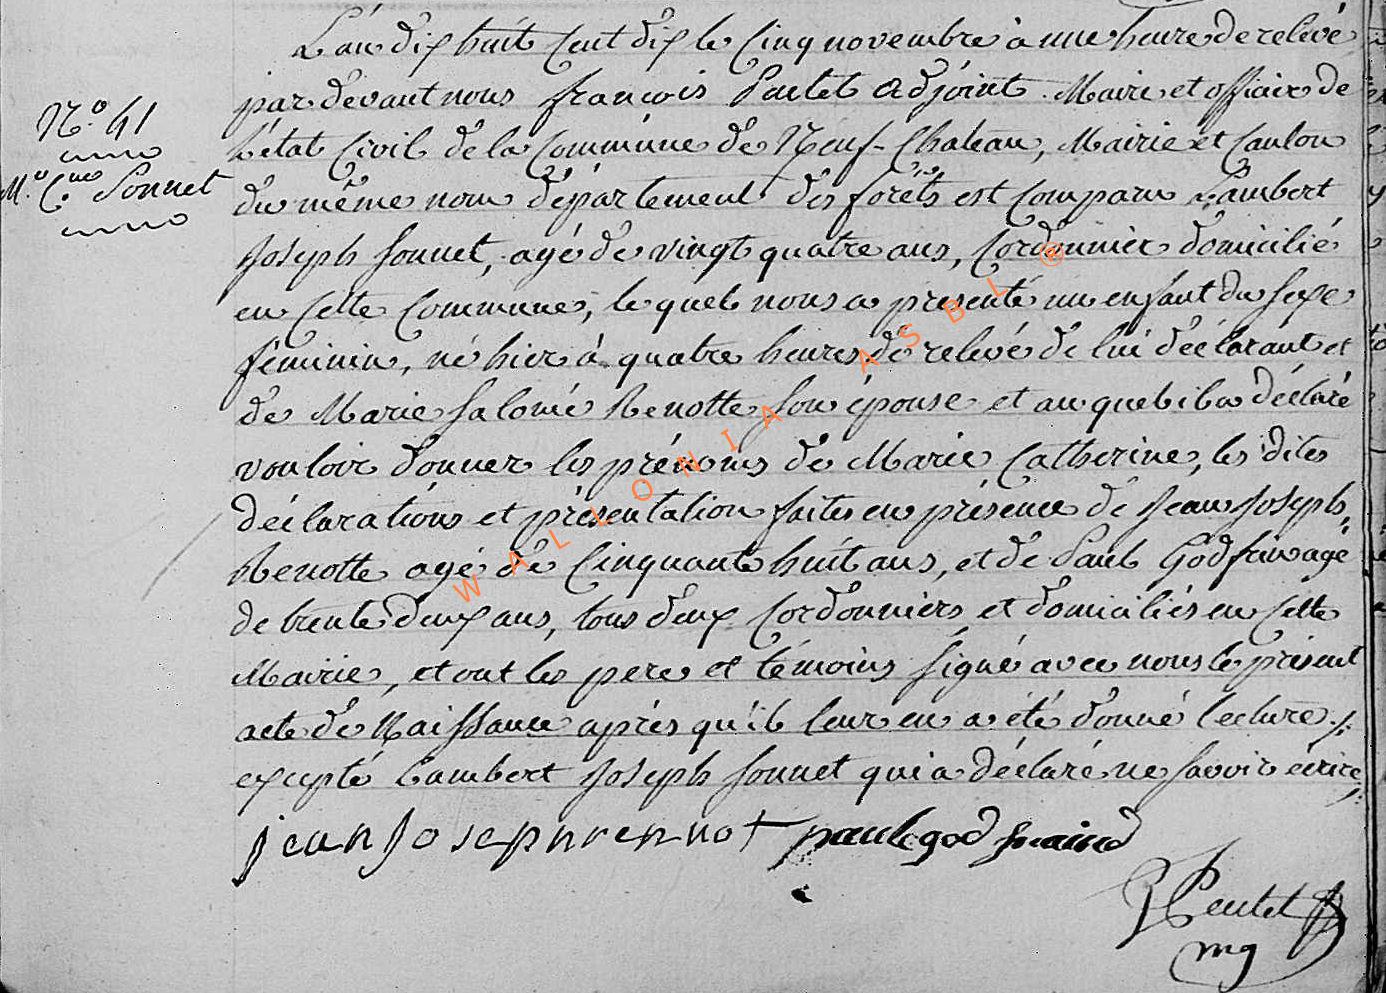 L'an dix huit cent dix le cinq novembre à une heure de relevé
par devant nous françois Pentet adjoint Maire et officier de
N.º 41
l'état Civil de la Commune de Neuf-Chateau, Mairie et Canton
M.e C.ne Sonnet
du même nom département des forêts est comparu Lambert
Joseph Sonnet, agé de vingt quatre ans, Cordonnier domicilié
en cette Commune, lequel nous a présenté un enfant du sexe
féminin, né hier à quatre heures de relevé de lui déclarant et
de Marie Salomé Renotte son épouse et auquel il a déclaré
vouloir donner les prénoms de Marie Catherine, les dites
déclarations et présentation faites en présence de Jean Joseph
Renotte agé de Cinquante huit ans, et de Paul Godfrin agé
de trente deux ans, tous deux Cordonniers et domiciliés en cette
Mairie, et ont les pere et témoins signé avec nous le présent
acte de Naissance après qu'il leur en a été donné lecture./.
excepté Lambert Joseph Sonnet qui a déclaré ne savoir écrire
jean Joseph rennot paul god frind
Pentet
mg
WALLONIA ASBL ®